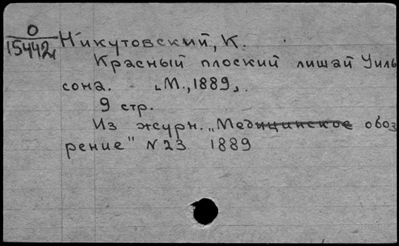 О
15442
Никутовский, К.
Красный плоский лишай Уиль
сона. - „М.,1889„.
9 стр.
Из журн. „Медицинское обоз
рение" N23 1889